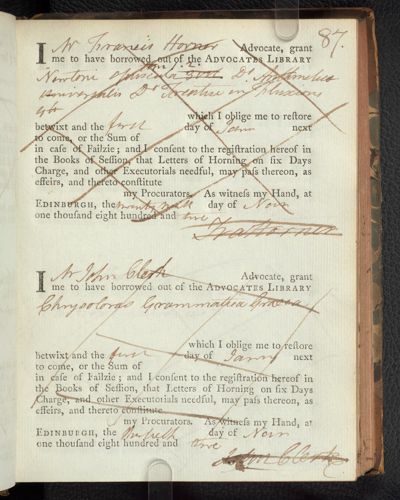 87.
I Mr Francis Horner Advocate, grant
me to have borrowed out of the ADVOCATES LIBRARY
Newtoni opuscula Do Arithmetica
universalis Do Treatise on Fluxions
4to
which I oblige me to restore
betwixt and the first day of Janry next
to come, or the Sum of
in case of Failzie; and I consent to the registration hereof in
the Books of Session, that Letters of Horning on six Days
Charge, and other Executorials needful, may pass thereon, as
effeirs, and thereto constitute
my Procurators. As witness my Hand, at
EDINBURGH, the day of Novr
one thousand eight hundred and two
Fra Horner
I Mr John Clerk Advocate, grant
me to have borrowed out of the ADVOCATES LIBRARY
Chrysoloras Grammatica Graeca
which I oblige me to restore
betwixt and the first day of Janry next
to come, or the Sum of
in case of Failzie; and I consent to the registration hereof in
the Books of Session, that Letters of Horning on six Days
Charge, and other Executorials needful, may pass thereon, as
effeirs, and thereto constitute
my Procurators. As witness my Hand, at
EDINBURGH, the day of Novr
one thousand eight hundred and two
John Clerk